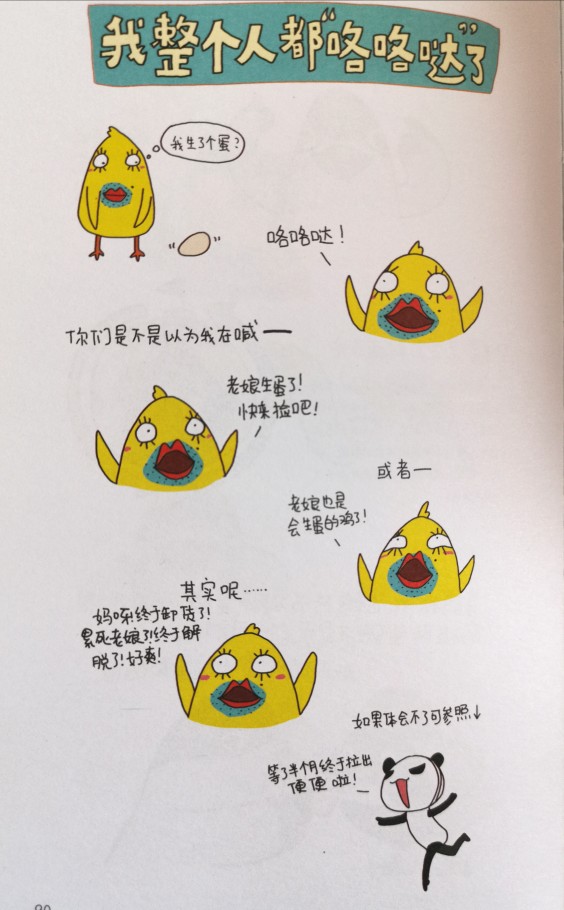 我整个人都“咯咯哒”了
我生了个蛋?
咯咯哒!
你们是不是以为我在喊一
老娘生蛋了!
快来捡吧!
或者一
老娘也是
会生蛋的鸡了!
其实呢……
妈呀!终于卸货了!
累死老娘了!终于解
脱了!好爽!
如果体会不了可参照↓
等了半个月终于拉出
便便啦!